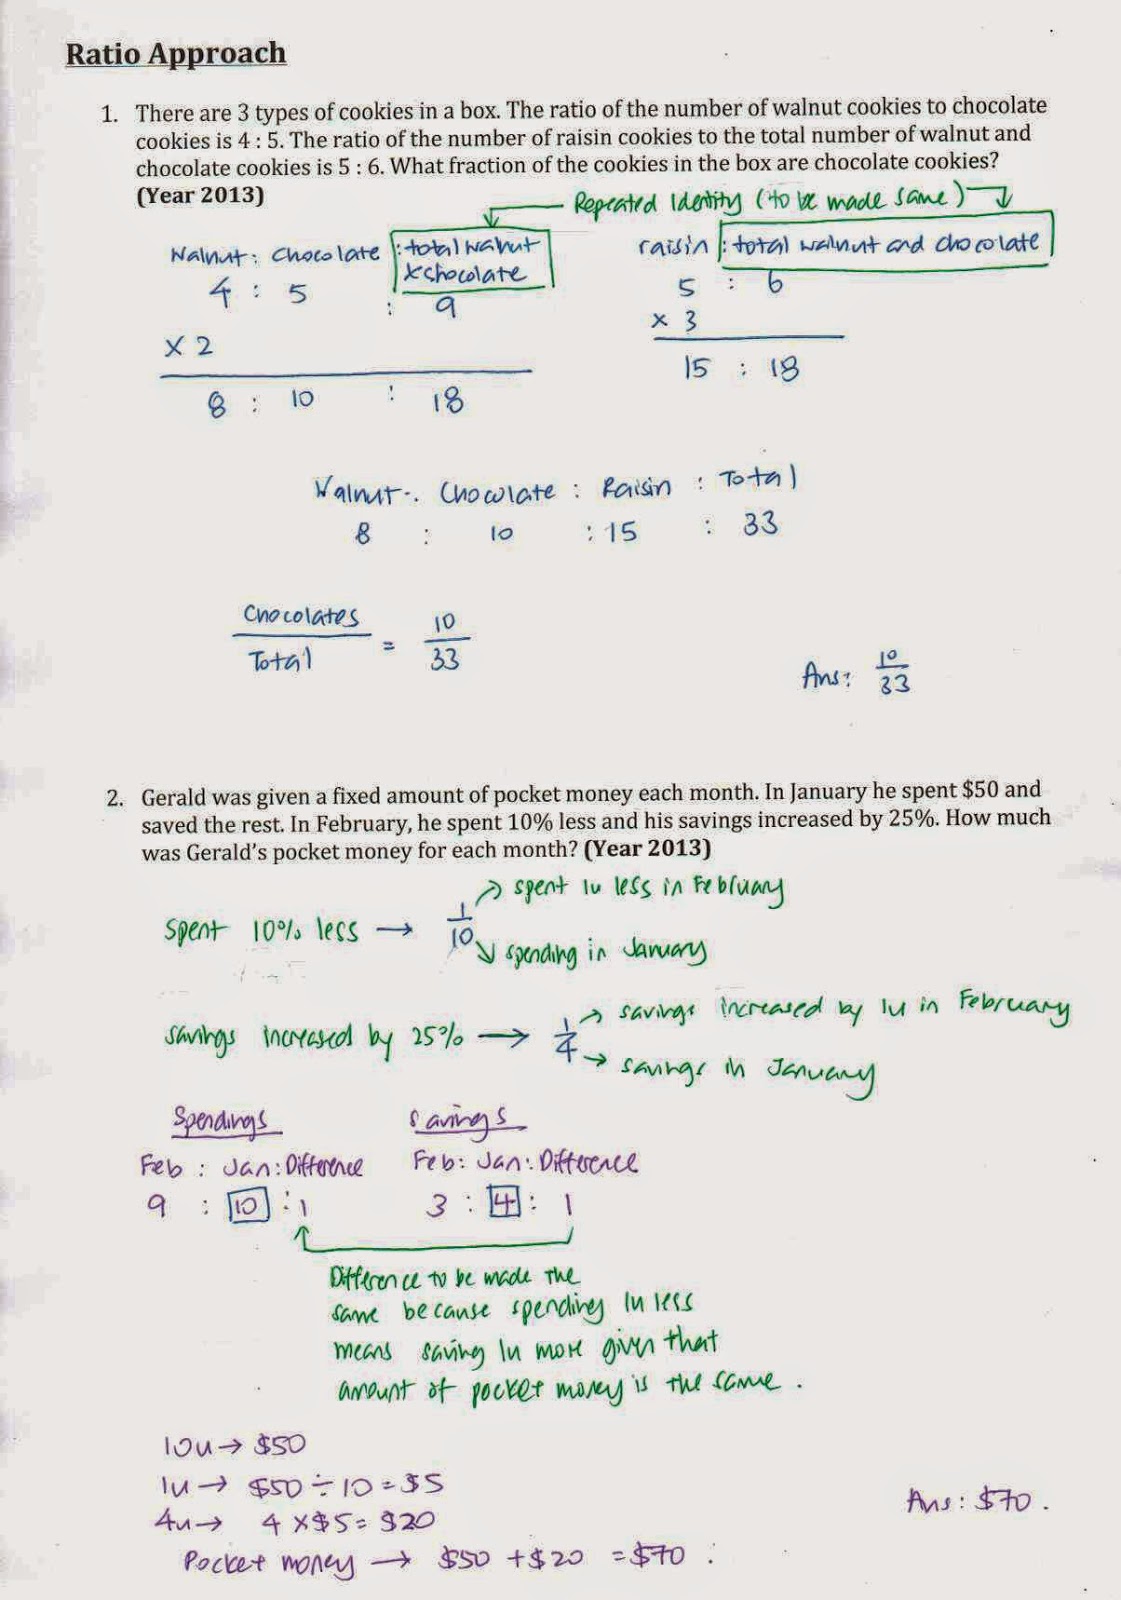 Ratio Approach
1. There are 3 types of cookies in a box. The ratio of the number of walnut cookies to chocolate
cookies is 4 : 5. The ratio of the number of raisin cookies to the total number of walnut and
chocolate cookies is 5 : 6. What fraction of the cookies in the box are chocolate cookies?
(Year 2013)
Repeated Identity (to be made same)
Walnut : Chocolate : total walnut
& chocolate
4 : 5 : 9
× 2
8 : 10 : 18
raisin : total walnut and chocolate
5 : 6
× 3
15 : 18
Walnut : Chocolate : Raisin : Total
8 : 10 : 15 : 33
Chocolates
Total
=
10
33
Ans: 10
33
2. Gerald was given a fixed amount of pocket money each month. In January he spent $50 and
saved the rest. In February, he spent 10% less and his savings increased by 25%. How much
was Gerald's pocket money for each month? (Year 2013)
spent 1u less in February
Spent 10% less → 1
10
spending in January
savings increased by 1u in February
savings increased by 25% → 1
4
savings in January
Spendings
Feb : Jan : Difference
9 : 10 : 1
Savings
Feb : Jan : Difference
3 : 4 : 1
Difference to be made the
same because spending 1u less
means saving 1u more given that
amount of pocket money is the same.
10u → $50
1u → $50 ÷ 10 = $5
4u → 4 × $5 = $20
Pocket money → $50 + $20 = $70.
Ans: $70.